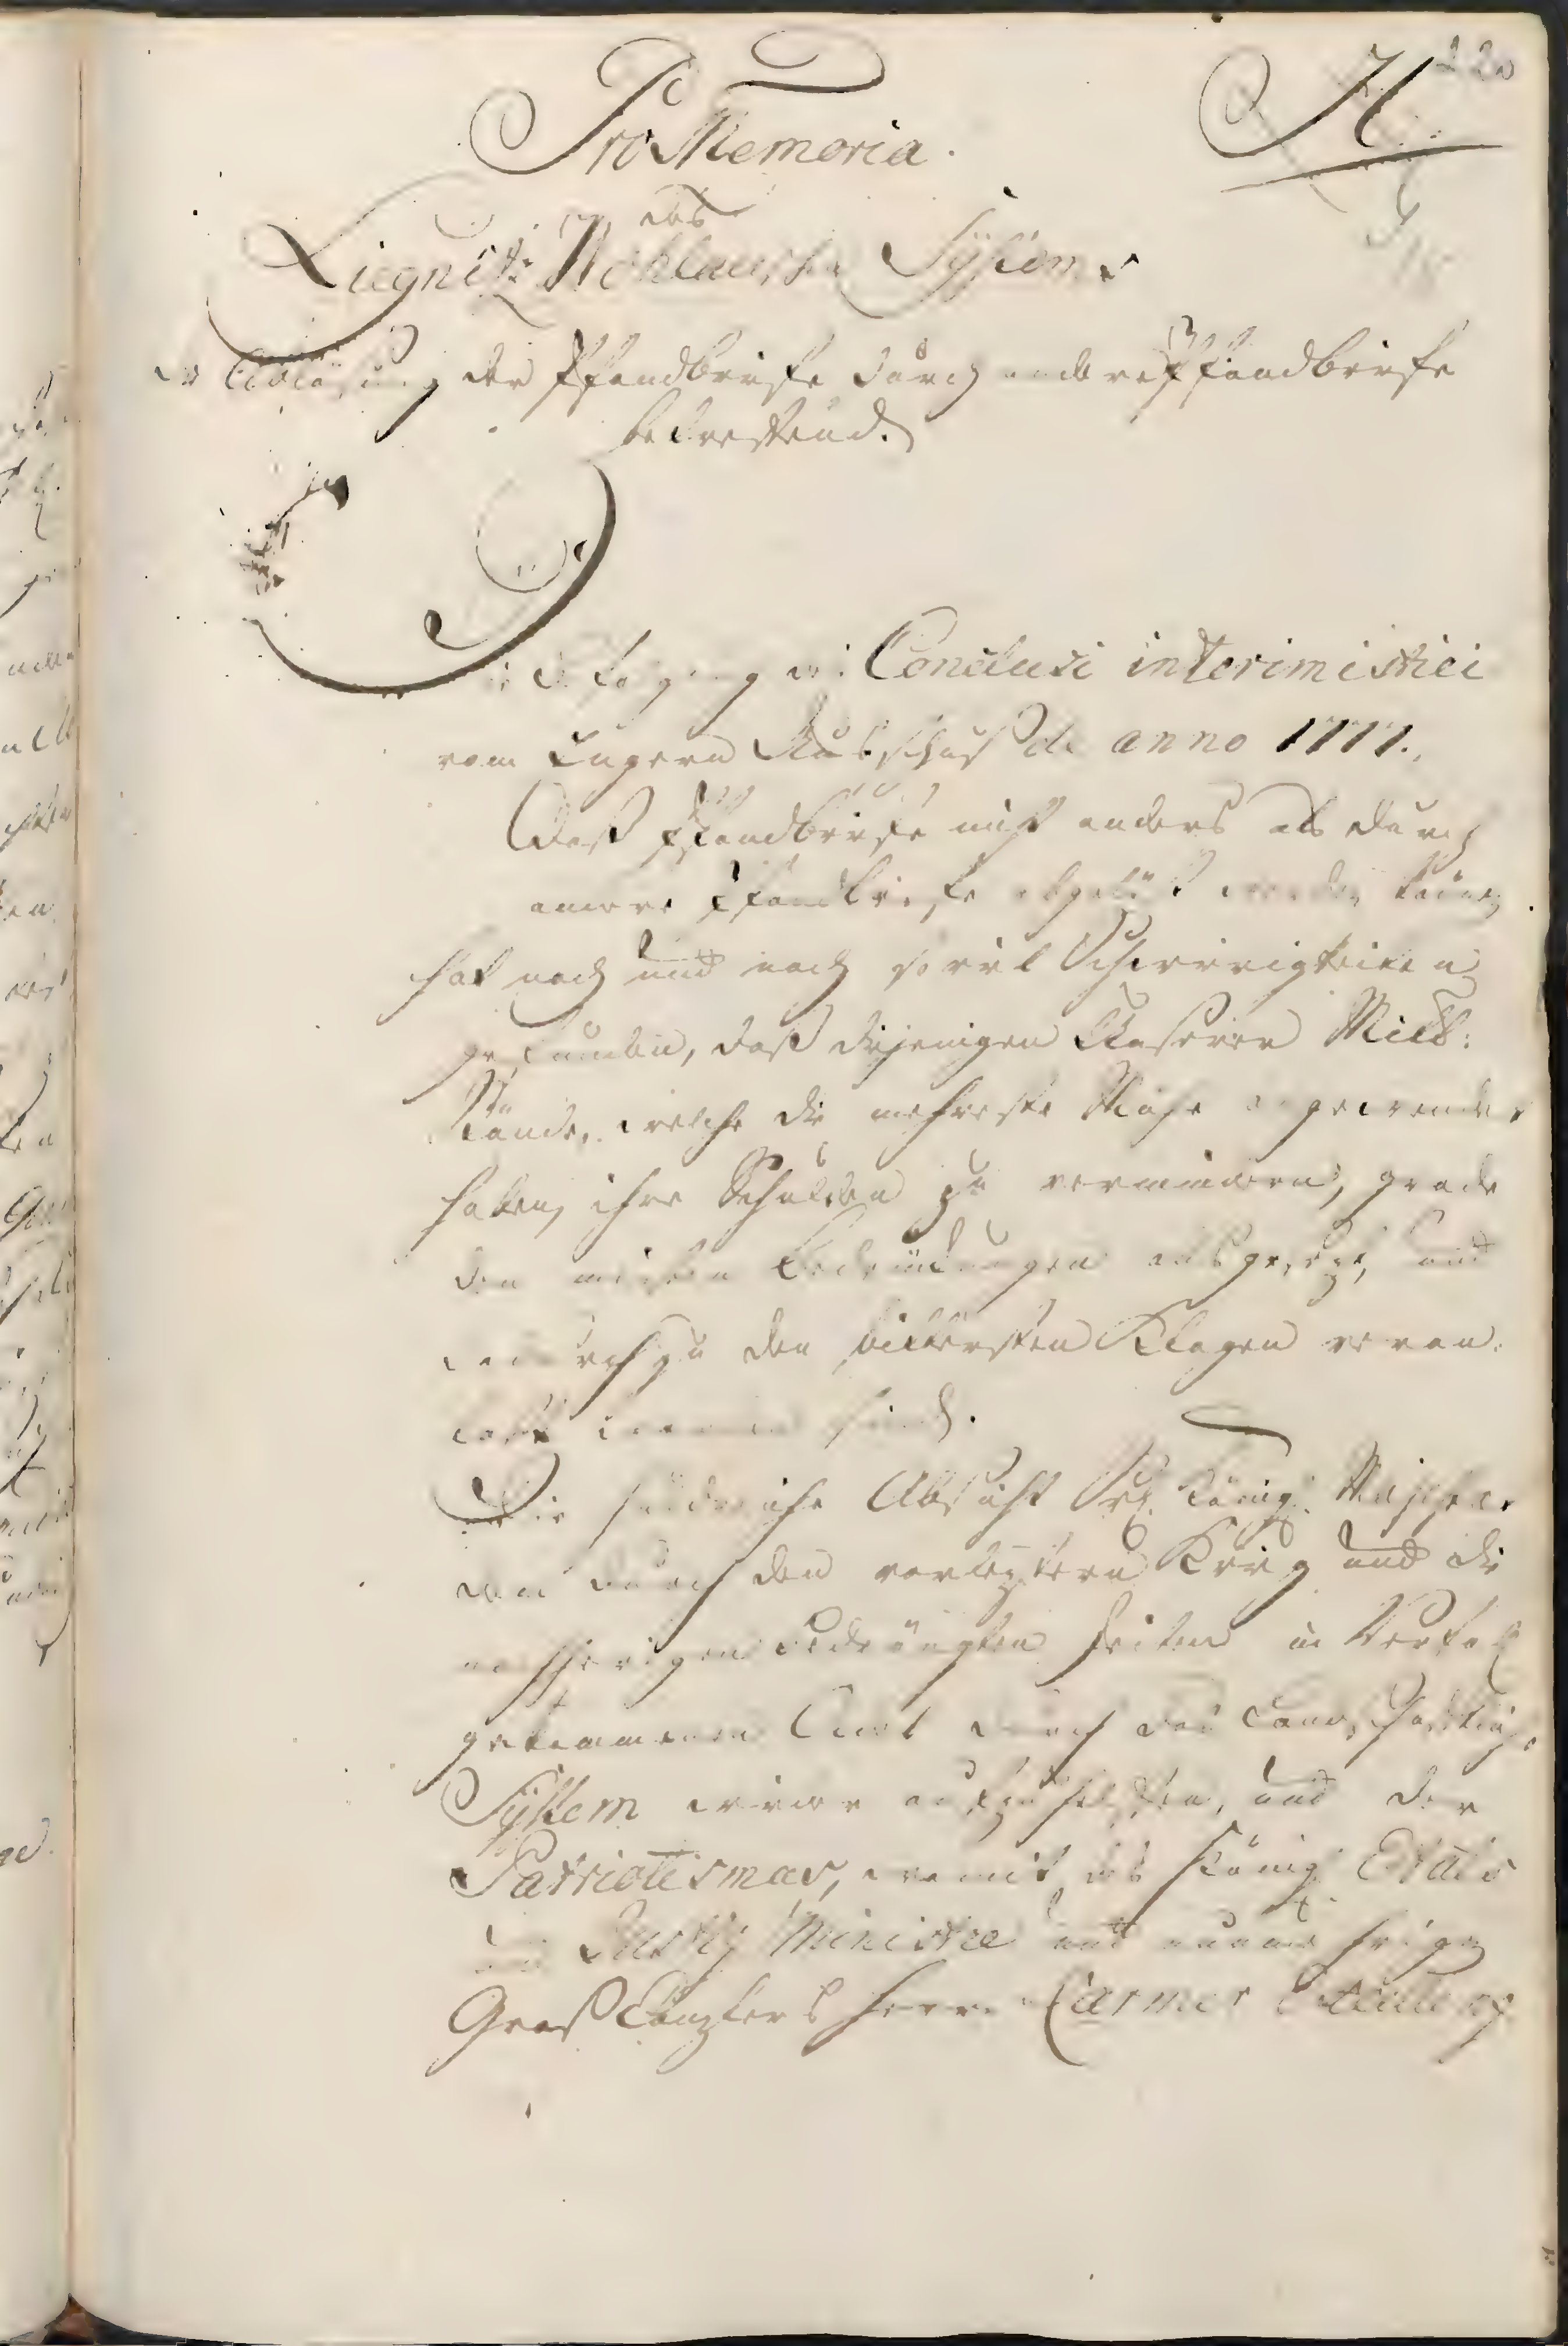 H
220
Pro Memoria.
des
Liegnitz Wohlauschen Systems
die Ablösung der Pfandbriefe durch andere Pfandbriefe
betreffend.
Die Befolgung des Conclusi interimistici
vom Engern Ausschuß de anno 1777.
Daß Pfandbriefe nicht anders als durch
andere Pfandbriefe abgelöst werden können
hat nach und nach so viel Schwierigkeiten
gefunden, daß diejenigen unserer Mitt:
Stände, welche die mehreste Mühe angewendet
haben, ihre Schulden zu vermindern, grade
den meisten Bedrückungen ausgesezt, und
dadurch zu den bittersten Klagen veran:
laßt worden sind.
Die Absicht Sr. Königl. Majestaet
den durch den vorleztern Krieg und die
nachherigen bedrängten Zeiten in Verfall
gekommenen Adel durch das Landschaftliche
System wieder aufzuhelfen, und der
Patriotismus, womit des Königl. Etats
und Justiz Ministre und nunmehrigen
Groß Canzlers Herrn Carmer Excellenz